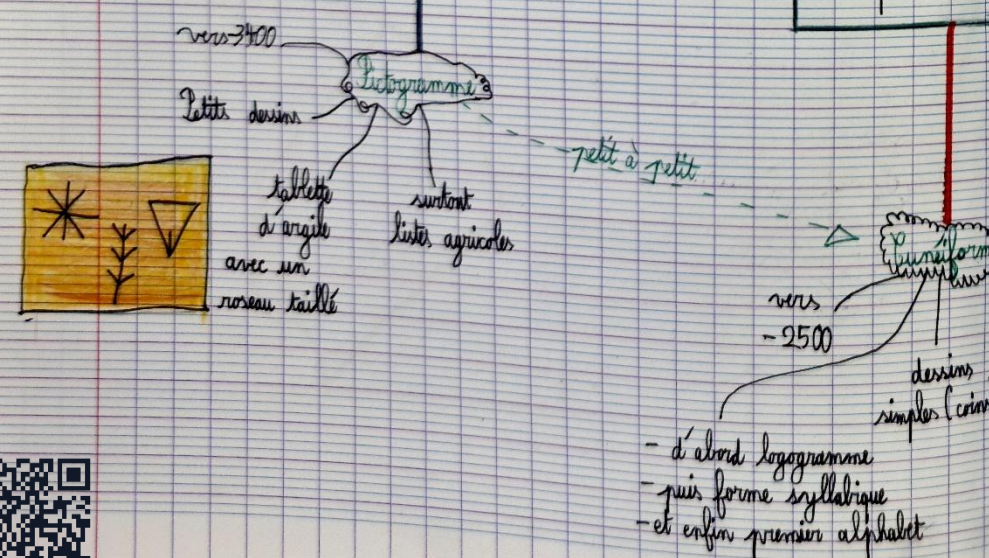 vers-3400
Pictogramme
Petits dessins
tablette
d'argile
avec un
roseau taillé
surtout
listes agricoles
petit à petit
Cunéiform
vers
-2500
dessins
simples (coins
- d'abord logogramme
- puis forme syllabique
- et enfin premier alphabet